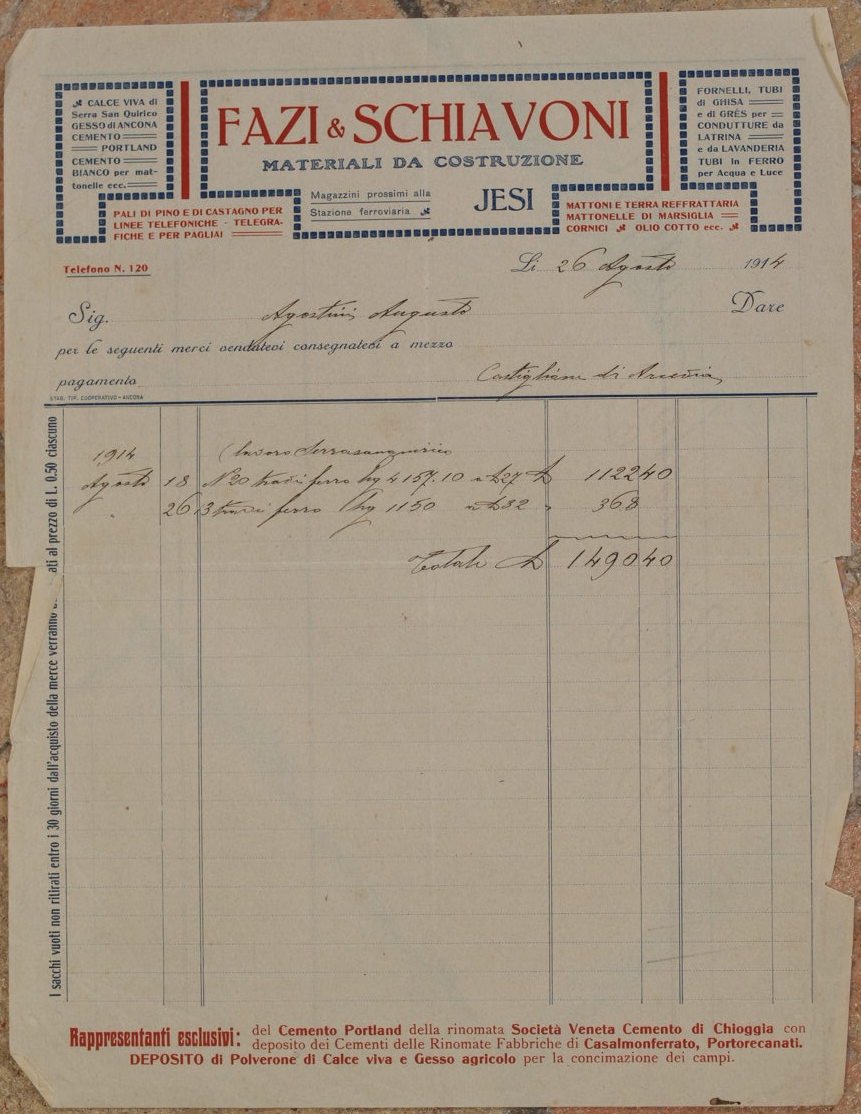 CALCE VIVA di
Serra San Quirico
GESSO di ANCONA
CEMENTO
PORTLAND
CEMENTO
BIANCO per mat-
tonelle ecc.
PALI DI PINO E DI CASTAGNO PER
LINEE TELEFONICHE - TELEGRA-
FICHE E PER PAGLIAI
FAZI & SCHIAVONI
MATERIALI DA COSTRUZIONE
Magazzini prossimi alla
Stazione ferroviaria
JESI
FORNELLI, TUBI
di GHISA
e di GRÈS per
CONDUTTURE da
LATRINA
e da LAVANDERIA
TUBI in FERRO
per Acqua e Luce
MATTONI E TERRA REFFRATTARIA
MATTONELLE DI MARSIGLIA
CORNICI OLIO COTTO ecc.
Telefono N. 120
Li 26 Agosto 1914
Sig. Agostini Augusto Dare
per le seguenti merci vendutevi consegnatevi a mezzo
pagamento Castiglioni di Arcevia
STAB. TIP. COOPERATIVO - ANCONA
1914 (lavoro Serrasanquirico
Agosto 18 N° 20 travi ferro kg 4157.10 a £ 27 £ 112240
26 3 travi ferro kg 1150 a £ 32 " 368
Totale £ 149040
I sacchi vuoti non ritirati entro i 30 giorni dall'acquisto della merce verranno ati al prezzo di L. 0,50 ciascuno
Rappresentanti esclusivi: del Cemento Portland della rinomata Società Veneta Cemento di Chioggia con
deposito dei Cementi delle Rinomate Fabbriche di Casalmonferrato, Portorecanati.
DEPOSITO di Polverone di Calce viva e Gesso agricolo per la concimazione dei campi.